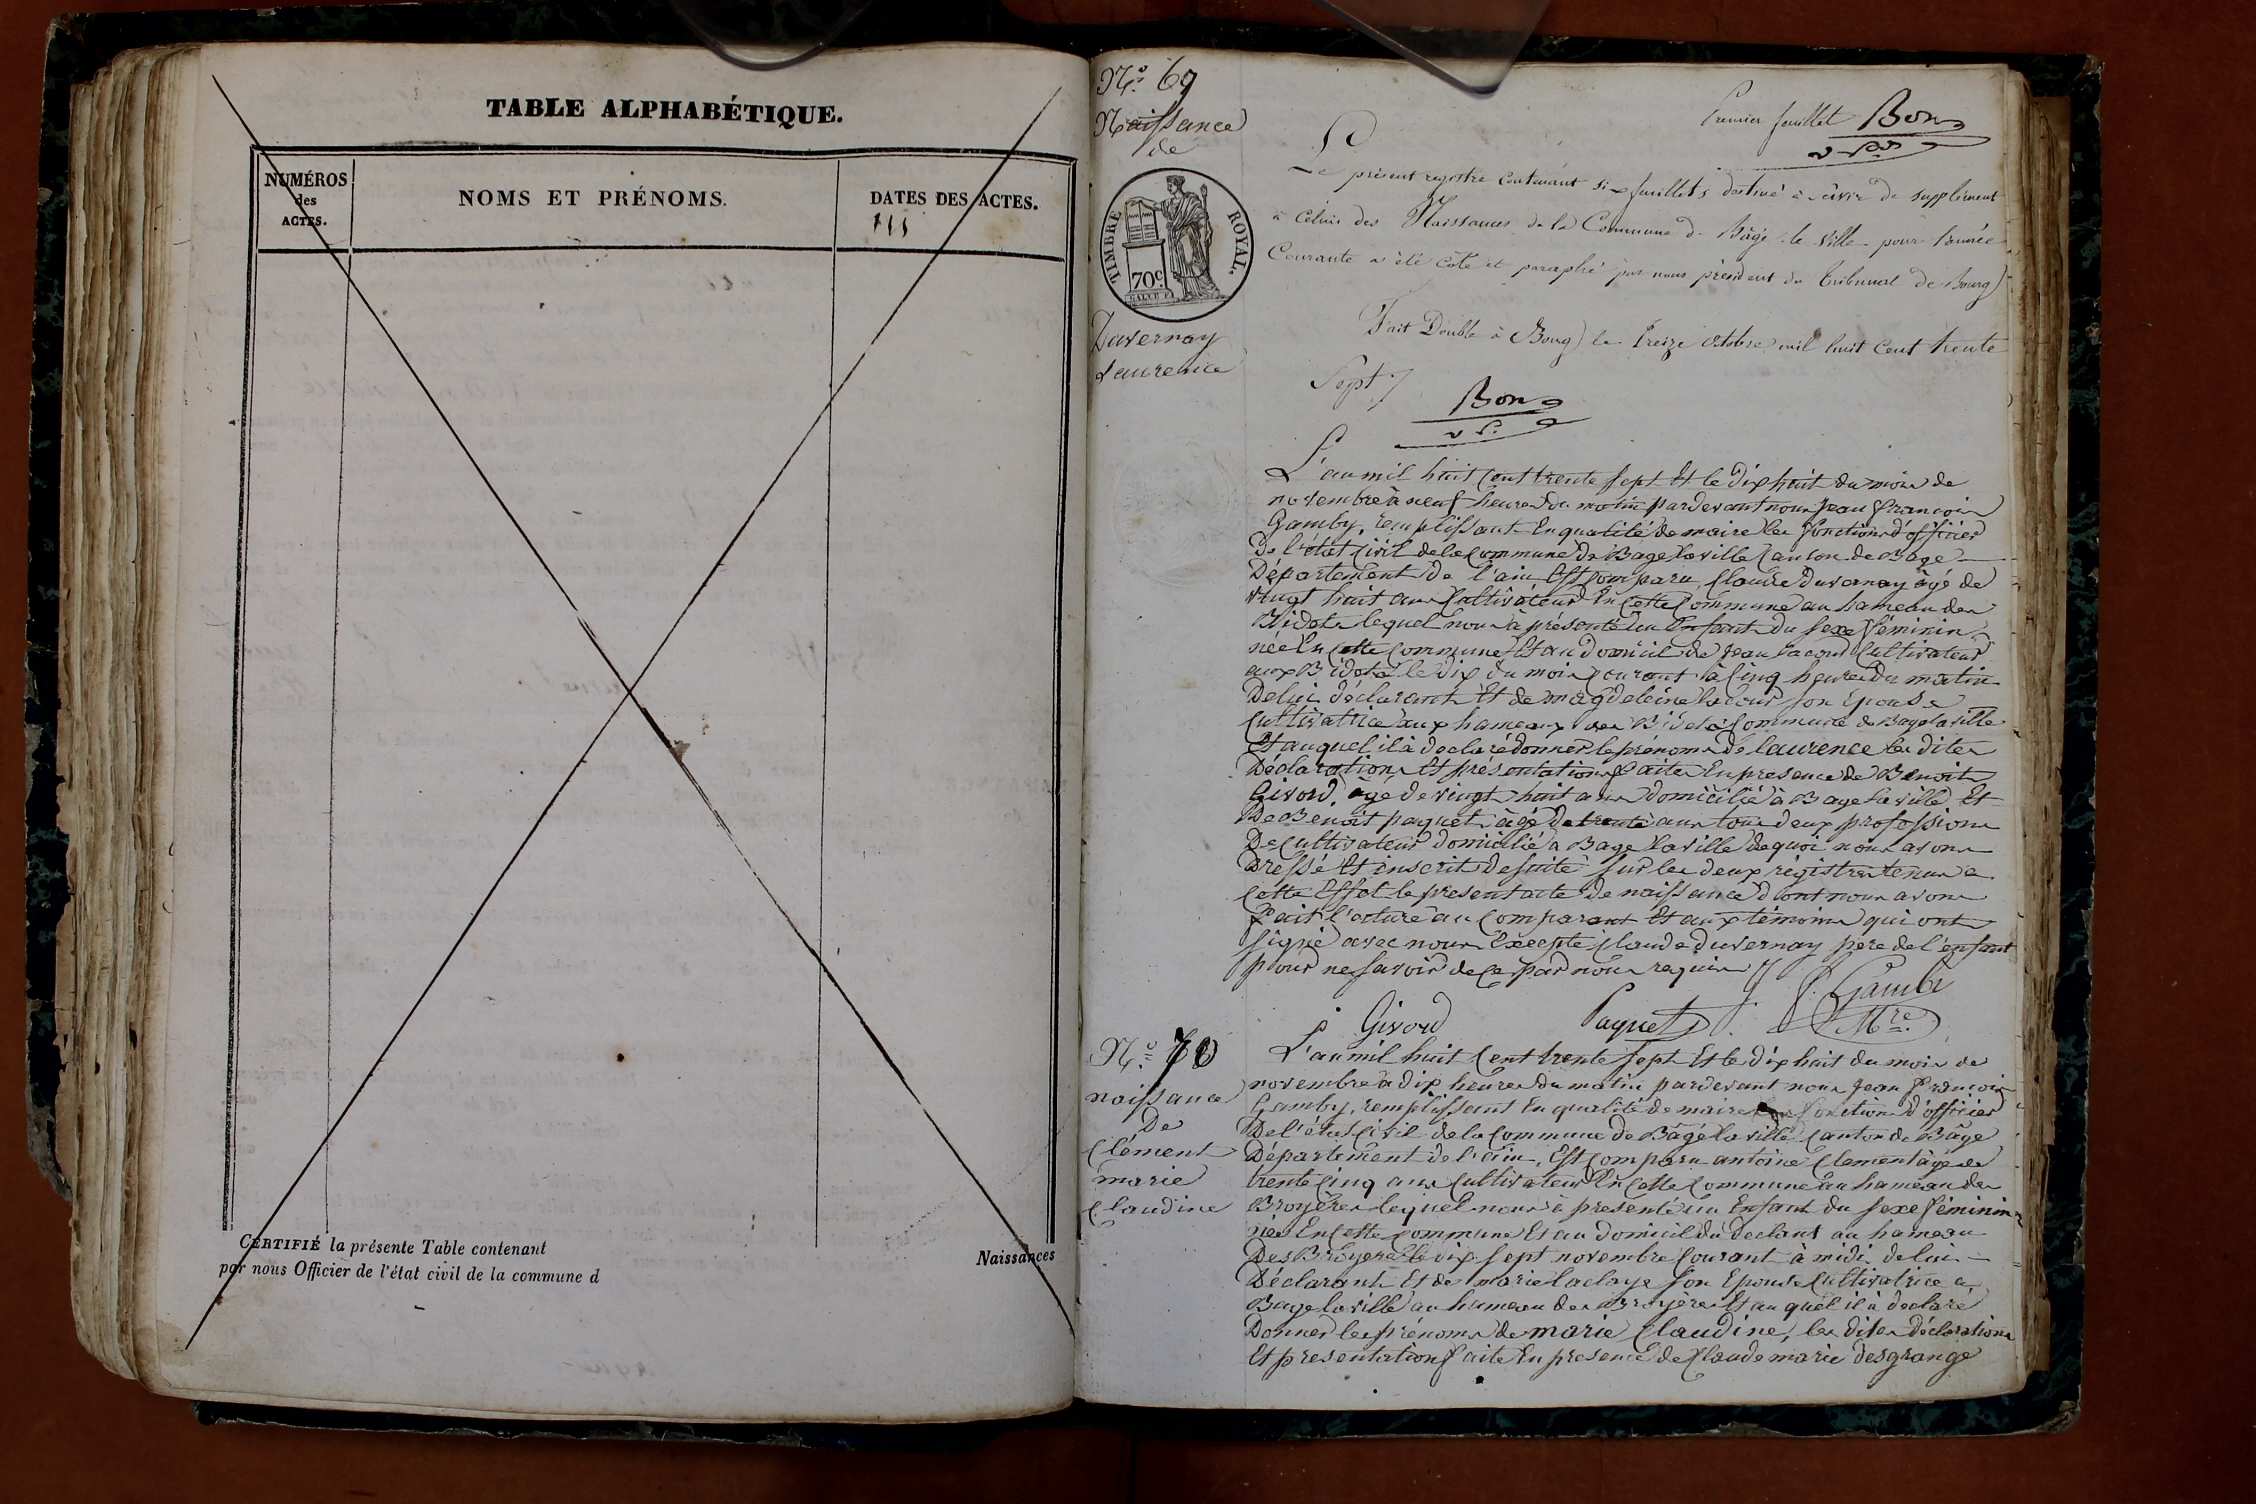 TABLE ALPHABÉTIQUE.
NUMÉROS
des
ACTES.
NOMS ET PRÉNOMS.
DATES DES ACTES.
CERTIFIÉ la présente Table contenant
Naissances
par nous Officier de l'état civil de la commune d
N.o 69
Naissance
de
TIMBRE ROYAL.
70c
Duvernay
Laurence
Premier feuillet Bon
Le présent registre contenant six feuillets destiné à servir de supplément
à celui des Naissances de la Commune de Bâgé la Ville pour l'année
Courante a été coté et paraphé par nous président du tribunal de Bourg
Fait Double à Bourg le treize octobre mil huit cent trente
Sept
Bon
L'an mil huit cent trente sept Et le dix huit du mois de
novembre à neuf heures du matin pardevant nous Jean françois
Gamby, remplissant En qualité de maire les fonctions d'officier
De l'état Civil de la Commune de Bagé la ville Canton de Bagé
Département de l'ain Est comparu Claude Duvernay âgé de
vingt huit ans Cultivateur En Cette Commune au hameau des
Bidots lequel nous à présenté un Enfant du sexe féminin
née En cette commune Et au domicil de Jean Lacour Cultivateur
aux Bidots le dix du mois Courant à Cinq heures du matin
De lui déclarant Et de magdeleine Lacour son Epouse
Cultivatrice aux hameaux des Bidots Commune de Bage la ville
Et auquel il à declaré donner le prénoms de laurence les dites
Déclarations Et présentations faites En presence de Benoit
Givord, âgé de vingt huit ans domicilié à Bage la ville Et
De Benoit paquet âgé de trente ans tous deux profession
De Cultivateur domicilié à Bage la ville de quoi nous avons
Dressé Et inscrit de suite sur les deux régistres tenus a
Cette Effet le present acte de naissance dont nous avons
fait l'ecture au Comparant Et aux témoins qui ont
signé avec nous Excepté Claude Duvernay pere de l'enfant
pour ne savoir de ce par nous requis
Givord Paquet Gambi
Mre
N.o 70
naissance
De
Clément
marie
Claudine
L'an mil huit Cent trente sept Et le dix huit du mois de
novembre à dix heures du matin pardevant nous Jean François
Gamby, remplissant En qualité de maire les fonctions d'officier
De l'état Civil de la Commune de Bâgé la ville Canton de Bâge
Département de l'ain, Est Comparu antoine Clement âge de
trente cinq ans Cultivateur En Cette Commune au hameau des
Broyères lequel nous à presenté un Enfant du sexe féminin
née En Cette Commune Et au domicil du déclant au hameau
Des Broyeres le dix sept novembre Courant à midi de lui
Déclarant Et de marie Laclaye son Epouse Cultivatrice à
Bage la ville au hameau des Broyères Et au quel il à declaré
Donner les prénoms de marie Claudine, les dites déclarations
Et presentation faite En presence de Claude marie desgrange